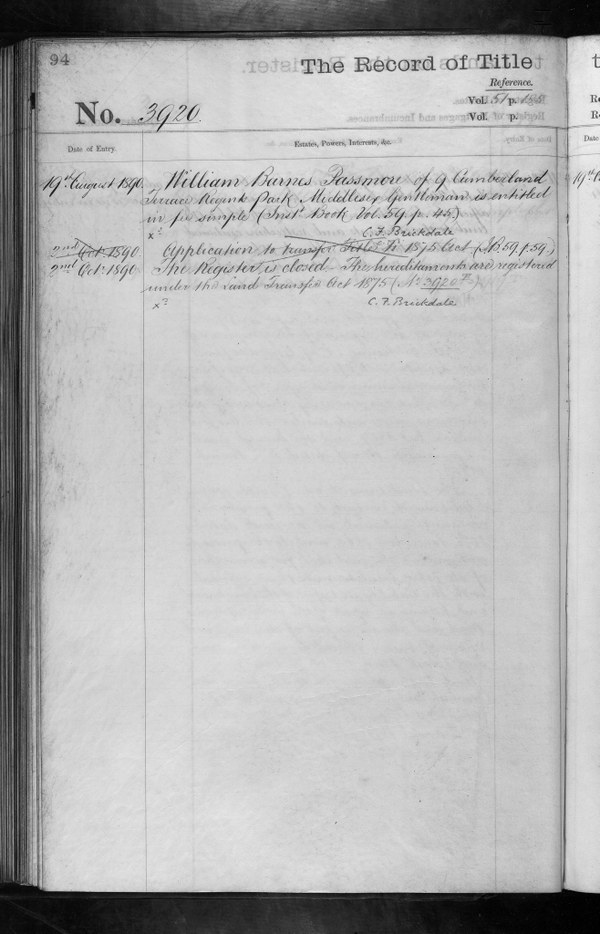 94
The Record of Title
Reference.
No. 3920.
Vol. 51 p.
Vol. p.
Date of Entry.
Estates, Powers, Interests, &c.
19th August 1890.
William Barnes Passmore of 9 Cumberland
Terrace Regents Park Middlesex Gentleman is entitled
in fee simple (Inst. Book Vol. 59. p. 45.)
C. F. Brickdale
2nd Oct. 1890
Application to transfer Titles to 1875 Act (59. p. 59.)
2nd Oct. 1890
The Register is closed – The hereditaments are registered
under the Land Transfer Act 1875 (No. 3920)
C. F. Brickdale
t
Re
Re
Date
19th